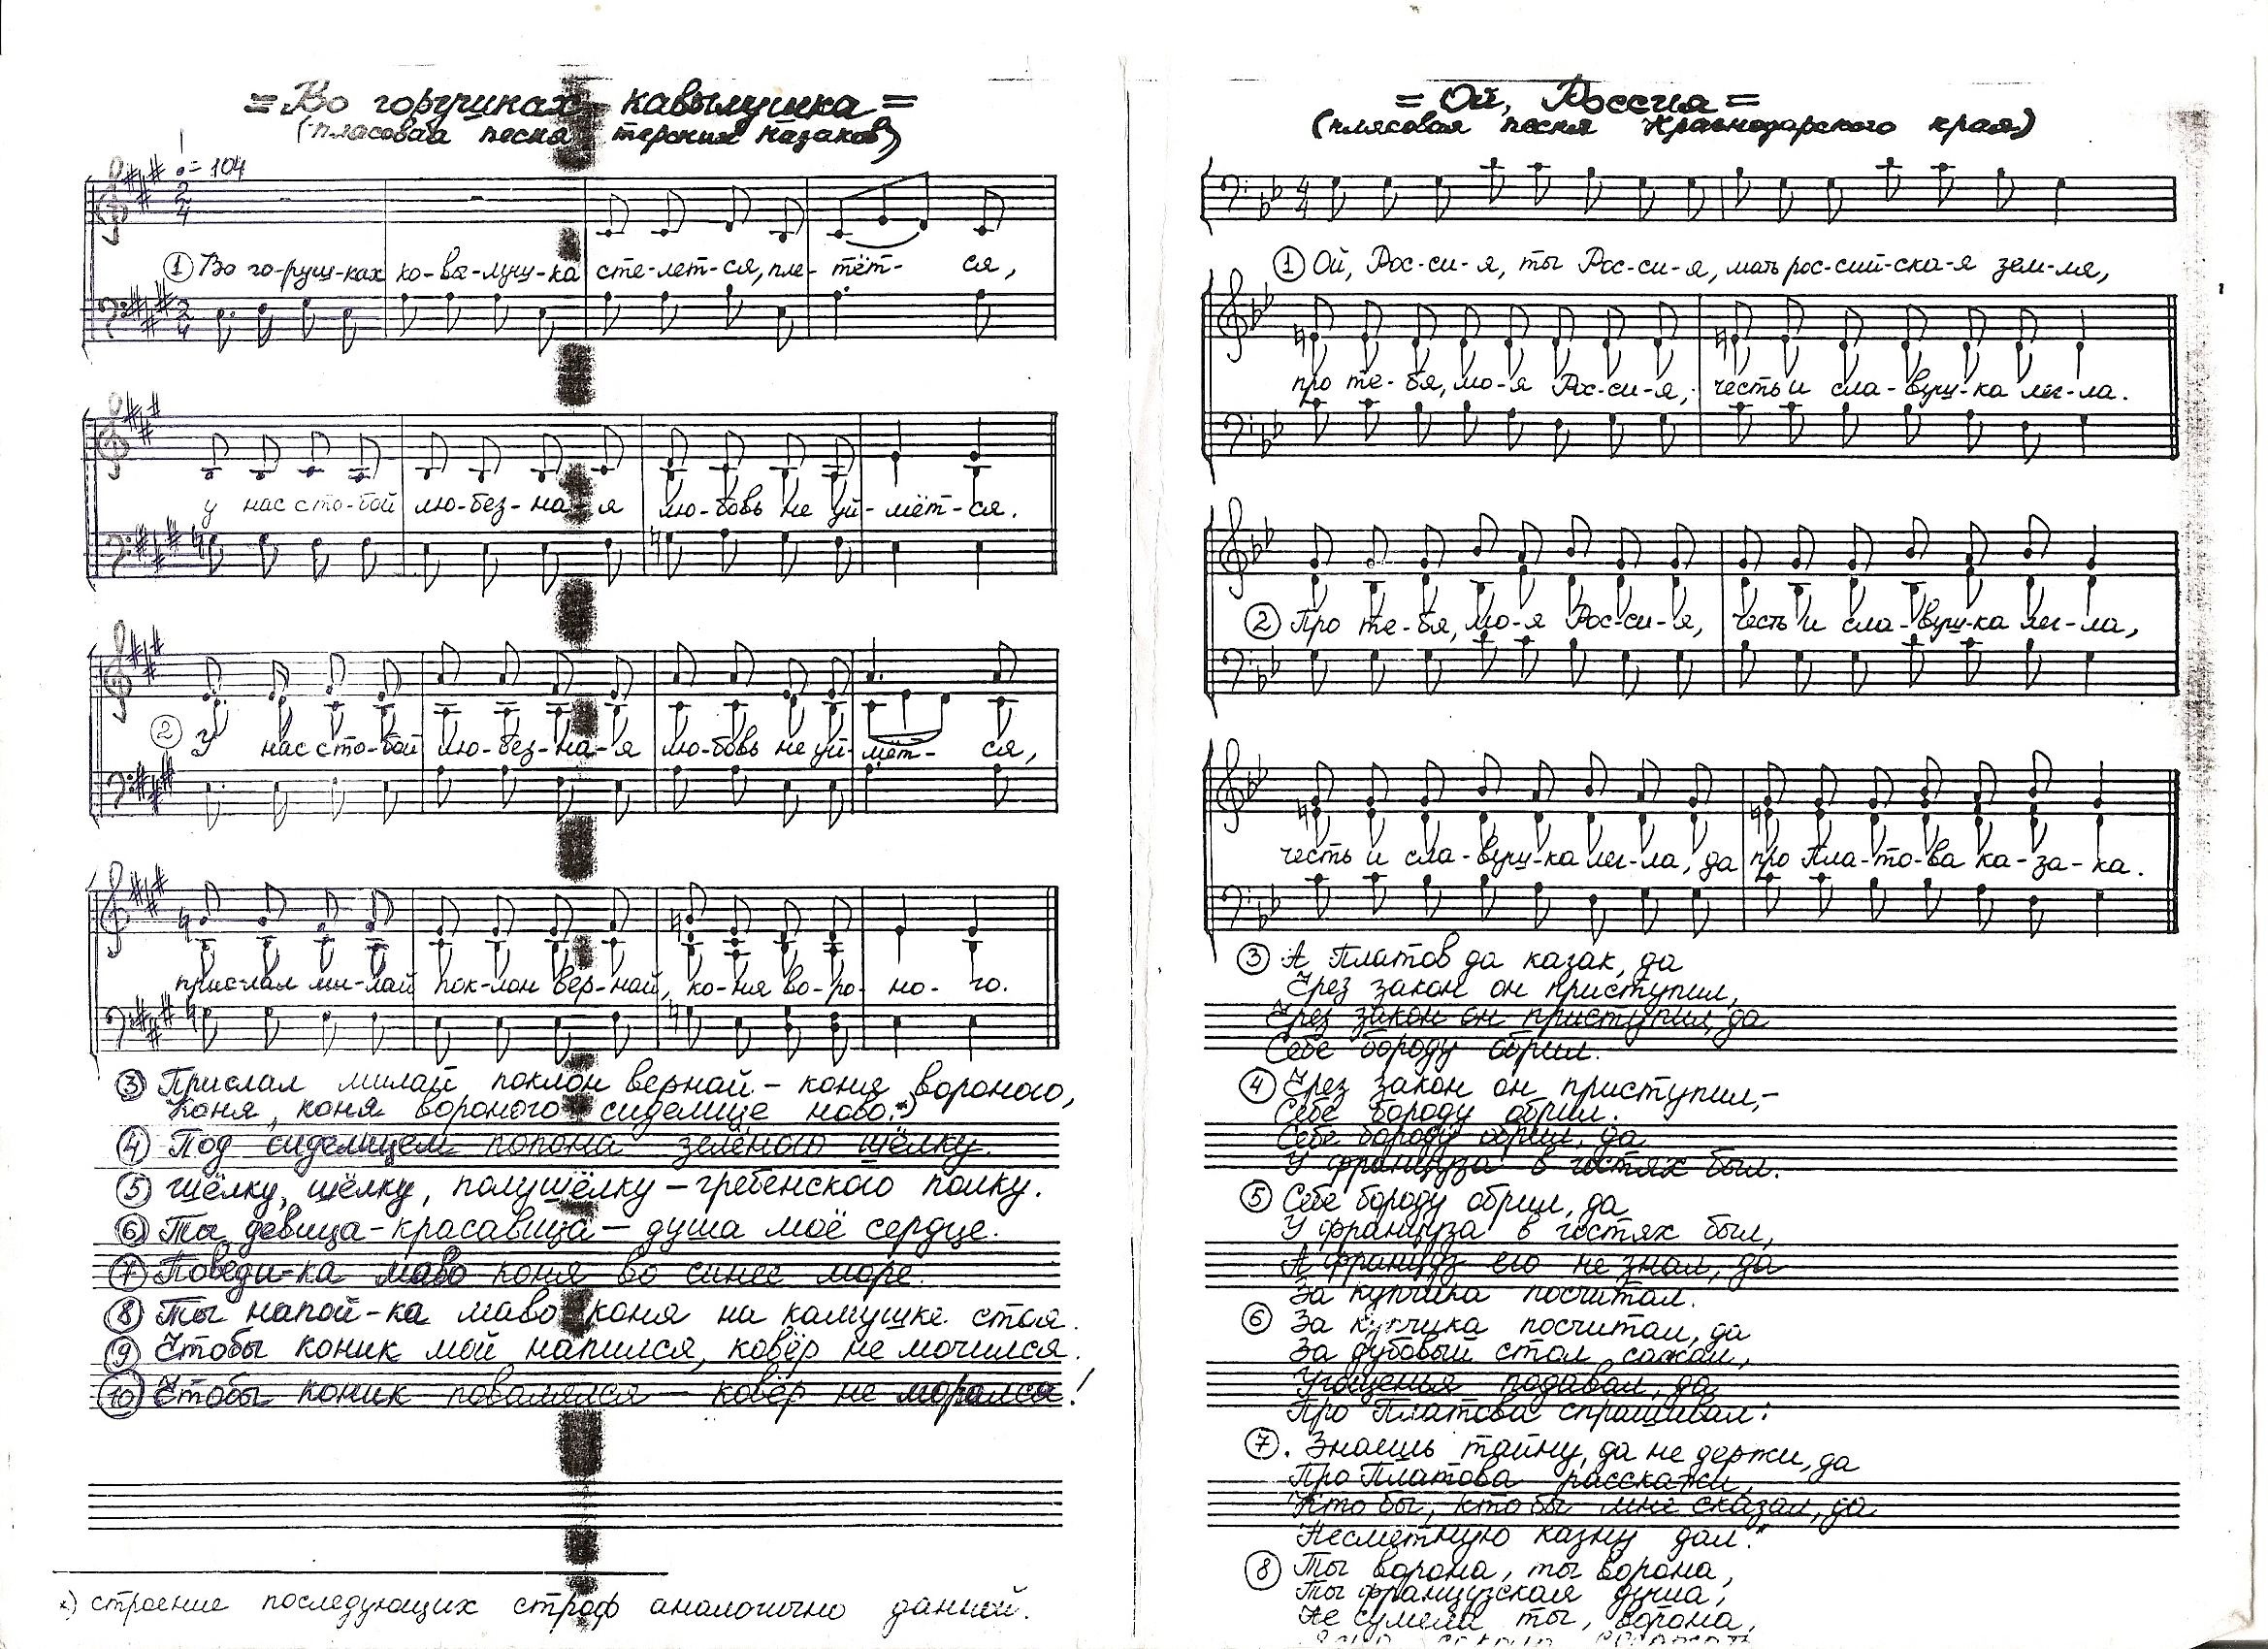 = Во горушках кавылушка =
(плясовая песня терских казаков)
= 104
2
4
① Во го-руш-ках ко-вы-луш-ка сте-лет-ся, пле-тёт-ся,
2
4
у нас с то-бой лю-без-на-я лю-бовь не уй-мёт-ся.
② У нас с то-бой лю-без-на-я лю-бовь не уй-мёт-ся,
прис-лал ми-лай пок-лон вер-най, ко-ня во-ро-но-го.
③ Прислал милай поклон вернай – коня вороного,
Коня, коня вороного сиделице ново. *)
④ Под сиделицем попона зелёного шёлку.
⑤ Шёлку, шёлку, полушёлку – гребенского полку.
⑥ Ты девица-красавица – душа моё сердце.
⑦ Поведи-ка маво коня во синее море.
⑧ Ты напой-ка маво коня на камушке стоя.
⑨ Чтобы коник мой напился, ковёр не мочился.
⑩ Чтобы коник повалялся – ковёр не морался!
*) строение последующих строф аналогично данной.
= Ой, Россия =
(плясовая песня Краснодарского края)
4
4
① Ой, Рос-си-я, ты Рос-си-я, мать рос-сий-ска-я зем-ля,
про те-бя, мо-я Рос-си-я, честь и сла-вуш-ка лег-ла.
② Про те-бя, мо-я Рос-си-я, честь и сла-вуш-ка лег-ла,
честь и сла-вуш-ка лег-ла, да про Пла-то-ва ка-за-ка.
③ А Платов да казак, да
Чрез закон он приступил,
Чрез закон он приступил, да
Себе бороду обрил.
④ Чрез закон он приступил,–
Себе бороду обрил.
Себе бороду обрил, да
У француза в гостях был.
⑤ Себе бороду обрил, да
У француза в гостях был,
А француз его не знал, да
За купчика посчитал.
⑥ За купчика посчитал, да
За дубовый стол сажал,
Угощенья подавал, да
Про Платова спрашивал:
⑦. Знаешь тайну, да не держи, да
Про Платова расскажи,
Кто бы, кто бы мне сказал, да
Несметную казну дал."
⑧ Ты ворона, ты ворона,
Ты французская душа,
Не сумела ты, ворона,